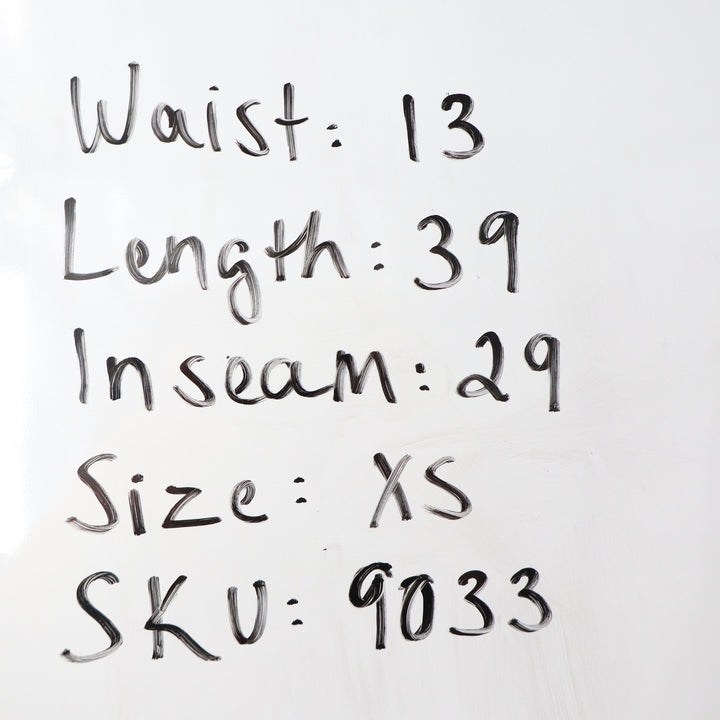 Waist: 13
Length: 39
Inseam: 29
Size: XS
SKU: 9033